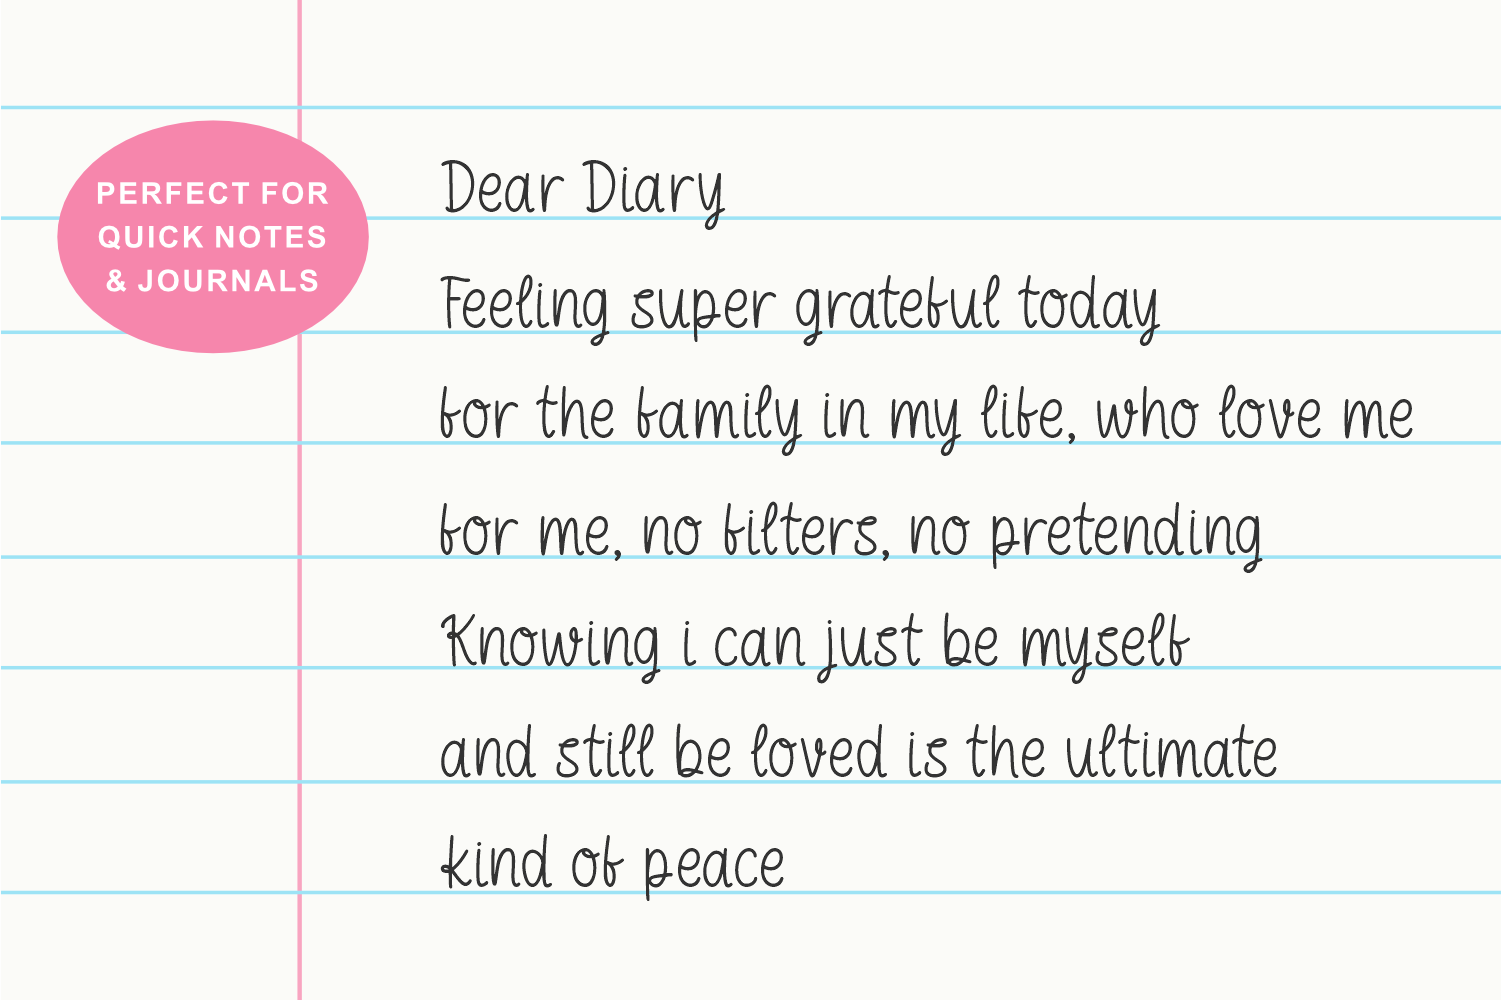 PERFECT FOR
QUICK NOTES
& JOURNALS
Dear Diary
Feeling super grateful today
for the family in my life, who love me
for me, no filters, no pretending
Knowing i can just be myself
and still be loved is the ultimate
kind of peace